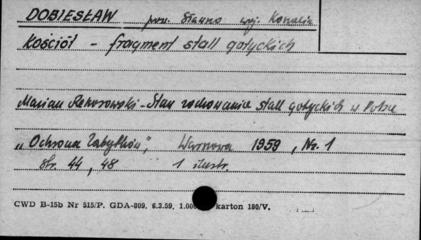 DOBIESŁAW pow. Sławno woj. Koszalin
Kościół - fragment stall gotyckich
Marian Kornecki - Stan zachowania stall gotyckich w Polsce
"Ochrona Zabytków", Warszawa 1959, Nr. 1
str. 44, 48 1 ilustr.
CWD B-15b Nr 515/P. GDA-809. 6.3.59, 1.000 karton 180/V.